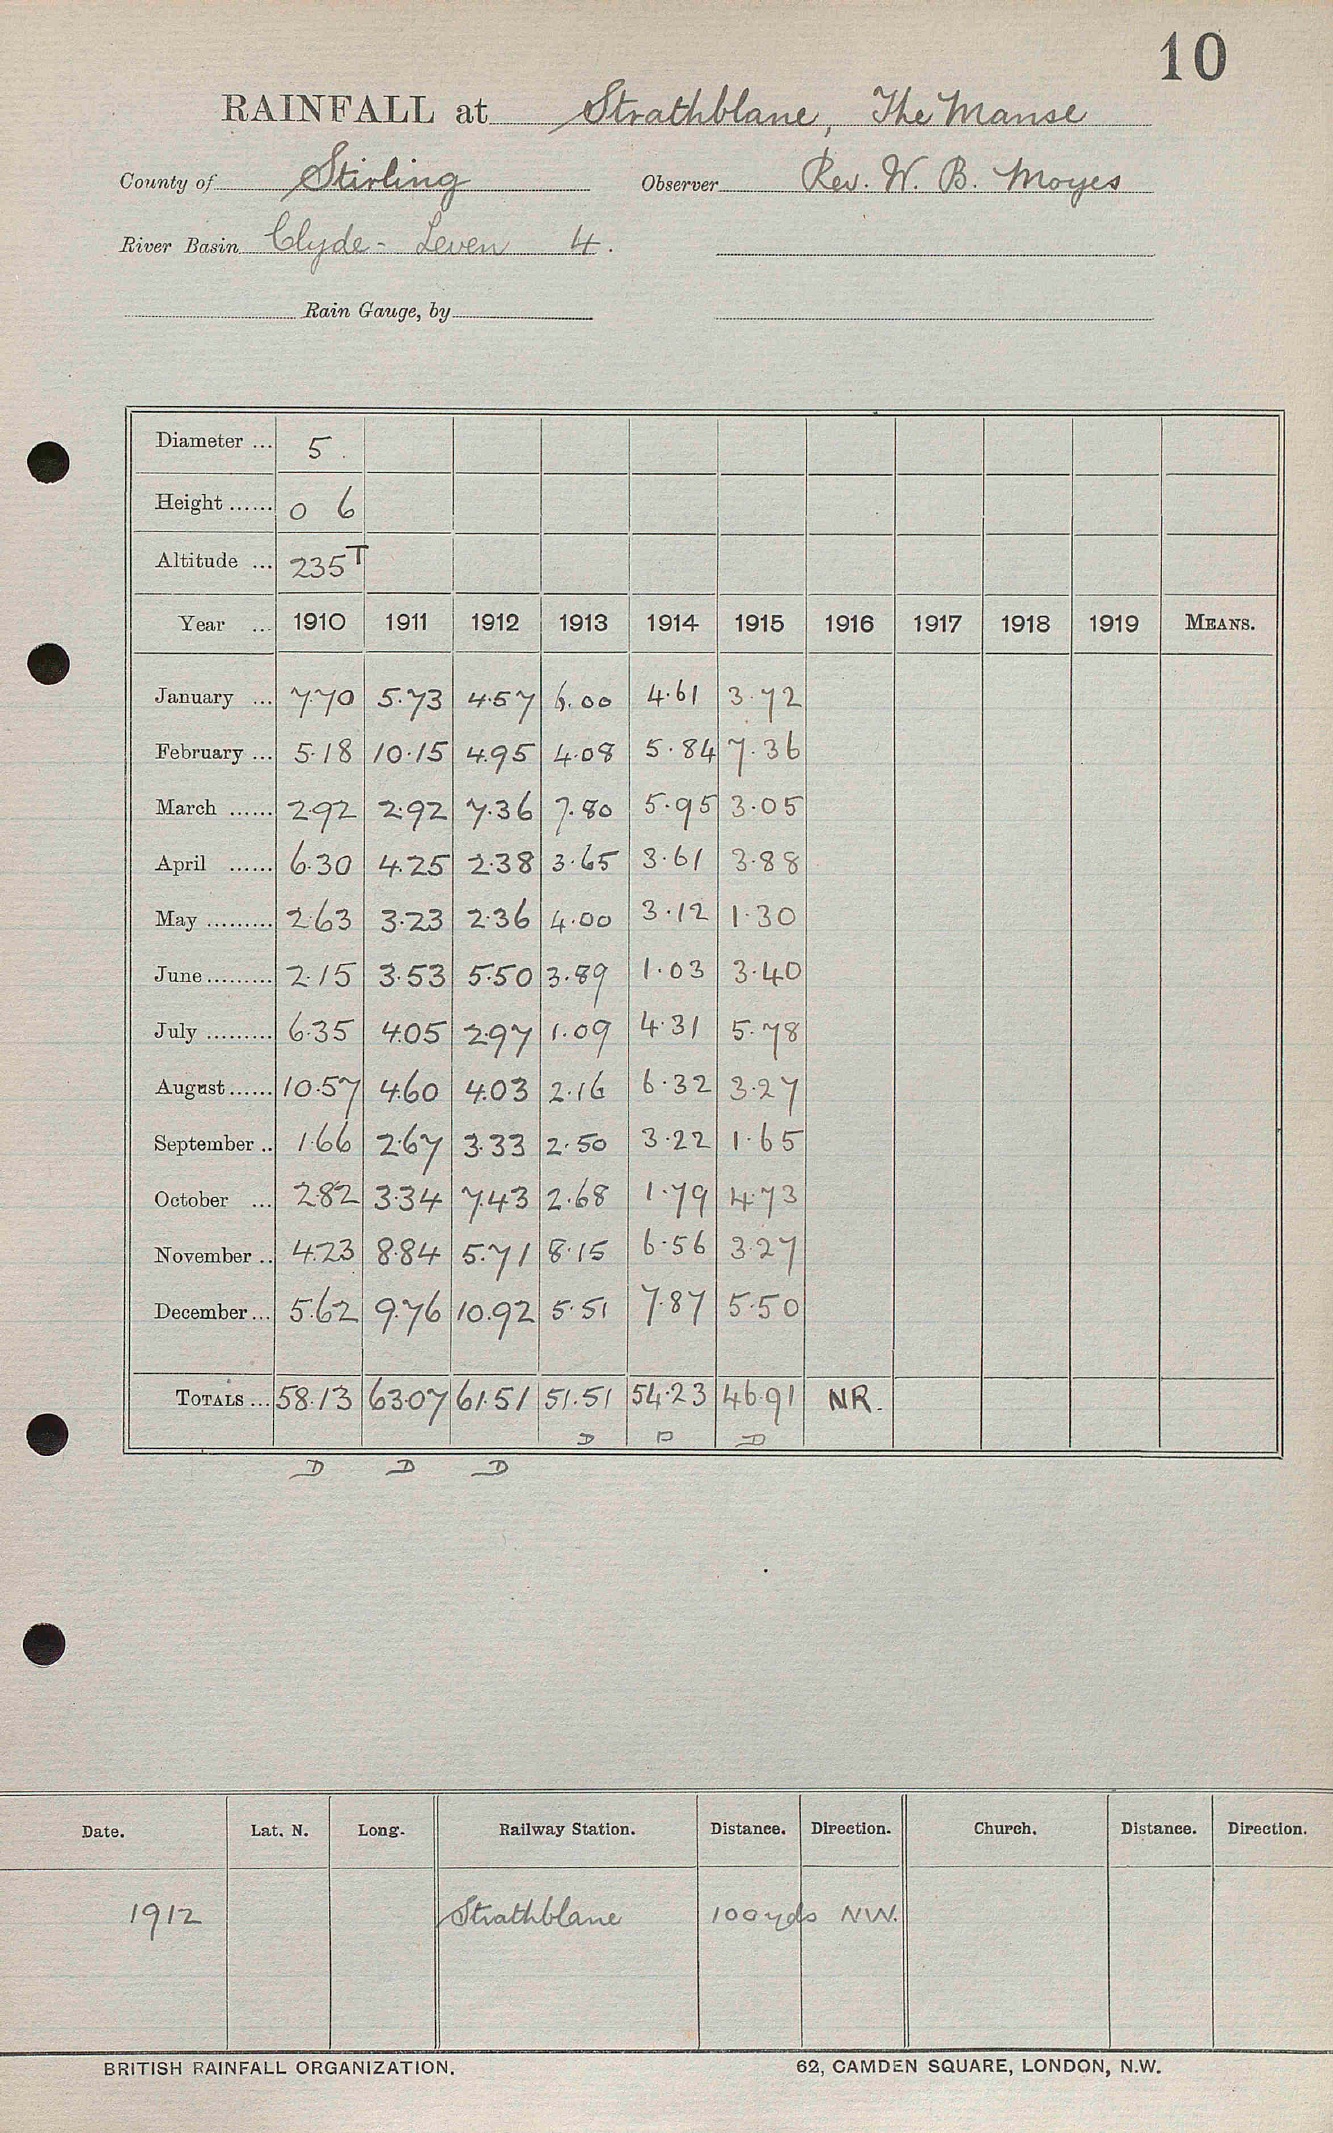 10
RAINFALL at Strathblane, The Manse
County of Stirling Observer Rev. W. B. Moyes
River Basin Clyde - Leven 4.
Rain Gauge, by
Diameter ... 5.
Height ...... 0 6
Altitude ... 235T
Year ... 1910 1911 1912 1913 1914 1915 1916 1917 1918 1919 MEANS.
January ... 7.70 5.73 4.57 6.00 4.61 3.72
February ... 5.18 10.15 4.95 4.08 5.84 7.36
March ...... 2.92 2.92 7.36 7.80 5.95 3.05
April ...... 6.30 4.25 2.38 3.65 3.61 3.88
May ......... 2.63 3.23 2.36 4.00 3.12 1.30
June ......... 2.15 3.53 5.50 3.89 1.03 3.40
July ......... 6.35 4.05 2.97 1.09 4.31 5.78
August ...... 10.57 4.60 4.03 2.16 6.32 3.27
September .. 1.66 2.67 3.33 2.50 3.22 1.65
October ... 2.82 3.34 7.43 2.68 1.79 4.73
November .. 4.23 8.84 5.71 8.15 6.56 3.27
December ... 5.62 9.76 10.92 5.51 7.87 5.50
TOTALS ... 58.13 63.07 61.51 51.51 54.23 46.91 NR.
D D D
D D D
Date. Lat. N. Long. Railway Station. Distance. Direction. Church. Distance. Direction.
1912 Strathblane 100 yds NW.
BRITISH RAINFALL ORGANIZATION. 62, CAMDEN SQUARE, LONDON, N.W.